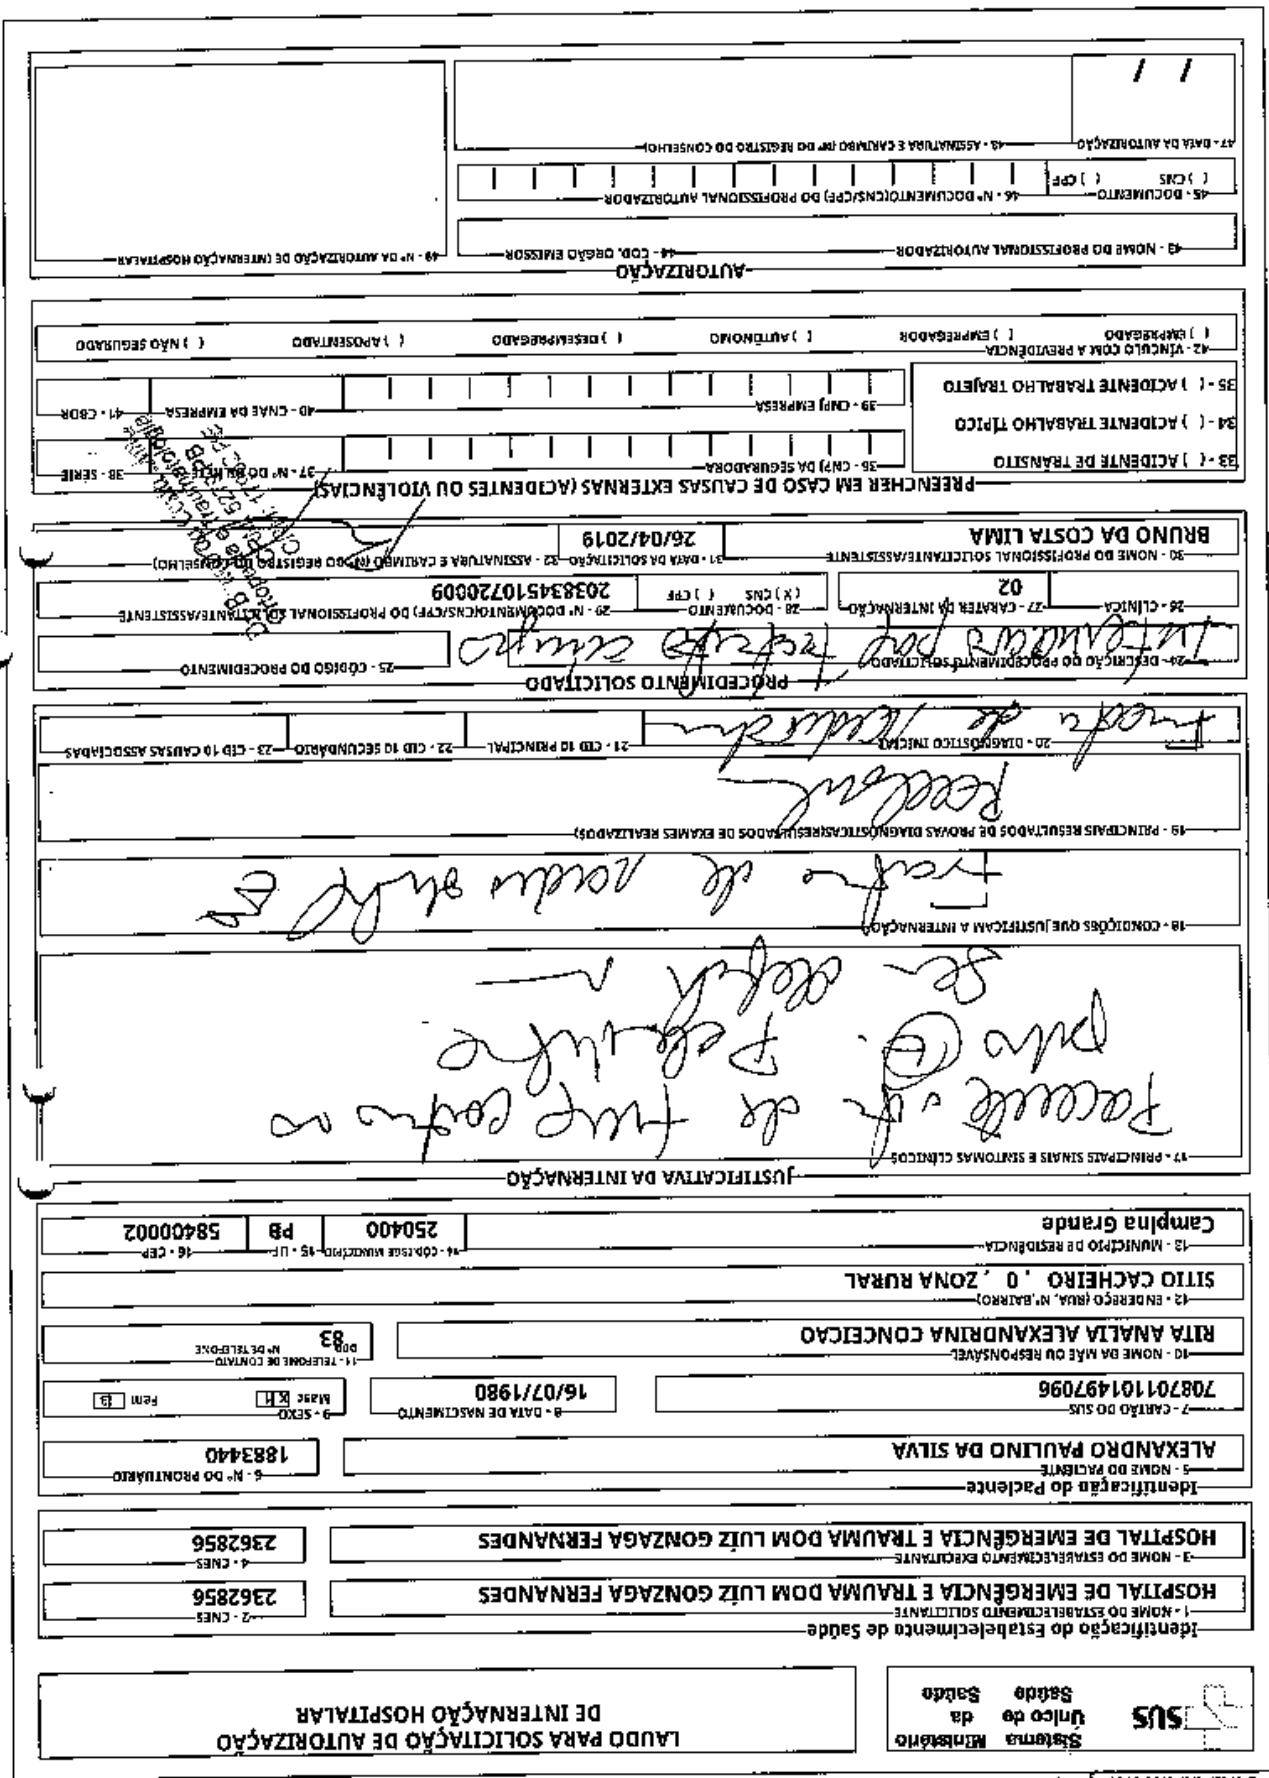 SUS
Sistema
Único de
Saúde
Ministério
da
Saúde
LAUDO PARA SOLICITAÇÃO DE AUTORIZAÇÃO
DE INTERNAÇÃO HOSPITALAR
Identificação do Estabelecimento de Saúde
1 - NOME DO ESTABELECIMENTO SOLICITANTE
HOSPITAL DE EMERGÊNCIA E TRAUMA DOM LUÍZ GONZAGA FERNANDES
2 - CNES
2362856
3 - NOME DO ESTABELECIMENTO EXECUTANTE
HOSPITAL DE EMERGÊNCIA E TRAUMA DOM LUÍZ GONZAGA FERNANDES
4 - CNES
2362856
Identificação do Paciente
5 - NOME DO PACIENTE
ALEXANDRO PAULINO DA SILVA
6 - Nº DO PRONTUÁRIO
1883440
7 - CARTÃO DO SUS
708701101497096
8 - DATA DE NASCIMENTO
16/07/1980
9 - SEXO
Masc X Fem
10 - NOME DA MÃE OU RESPONSÁVEL
RITA ANALIA ALEXANDRINA CONCEICAO
11 - TELEFONE DE CONTATO
DDD Nº DE TELEFONE
83
12 - ENDEREÇO (RUA, Nº, BAIRRO)
SITIO CACHEIRO , 0 , ZONA RURAL
13 - MUNICÍPIO DE RESIDÊNCIA
Campina Grande
14 - CÓD. IBGE MUNICÍPIO
250400
15 - UF
PB
16 - CEP
58400002
JUSTIFICATIVA DA INTERNAÇÃO
17 - PRINCIPAIS SINAIS E SINTOMAS CLÍNICOS
Paciente de
18 - CONDIÇÕES QUE JUSTIFICAM A INTERNAÇÃO
Fratura de
19 - PRINCIPAIS RESULTADOS DE PROVAS DIAGNÓSTICAS(RESULTADOS DE EXAMES REALIZADOS)
20 - DIAGNÓSTICO INICIAL
21 - CID 10 PRINCIPAL
22 - CID 10 SECUNDÁRIO
23 - CID 10 CAUSAS ASSOCIADAS
PROCEDIMENTO SOLICITADO
24 - DESCRIÇÃO DO PROCEDIMENTO SOLICITADO
25 - CÓDIGO DO PROCEDIMENTO
26 - CLÍNICA
27 - CARATER DA INTERNAÇÃO
02
28 - DOCUMENTO
( X ) CNS ( ) CPF
29 - Nº DOCUMENTO(CNS/CPF) DO PROFISSIONAL SOLICITANTE/ASSISTENTE
203834510720009
30 - NOME DO PROFISSIONAL SOLICITANTE/ASSISTENTE
BRUNO DA COSTA LIMA
31 - DATA DA SOLICITAÇÃO
26/04/2019
32 - ASSINATURA E CARIMBO (Nº DO REGISTRO DO CONSELHO)
PREENCHER EM CASO DE CAUSAS EXTERNAS (ACIDENTES OU VIOLÊNCIAS)
33 - ( ) ACIDENTE DE TRANSITO
34 - ( ) ACIDENTE TRABALHO TÍPICO
35 - ( ) ACIDENTE TRABALHO TRAJETO
36 - CNPJ DA SEGURADORA
37 - Nº DO BILHETE
38 - SÉRIE
39 - CNPJ EMPRESA
40 - CNAE DA EMPRESA
41 - CBOR
42 - VÍNCULO COM A PREVIDÊNCIA
( ) EMPREGADO ( ) EMPREGADOR ( ) AUTÔNOMO ( ) DESEMPREGADO ( ) APOSENTADO ( ) NÃO SEGURADO
AUTORIZAÇÃO
43 - NOME DO PROFISSIONAL AUTORIZADOR
44 - COD. ORGÃO EMISSOR
49 - Nº DA AUTORIZAÇÃO DE INTERNAÇÃO HOSPITALAR
45 - DOCUMENTO
( ) CNS ( ) CPF
46 - Nº DOCUMENTO(CNS/CPF) DO PROFISSIONAL AUTORIZADOR
47 - DATA DA AUTORIZAÇÃO
/ /
48 - ASSINATURA E CARIMBO (Nº DO REGISTRO DO CONSELHO)